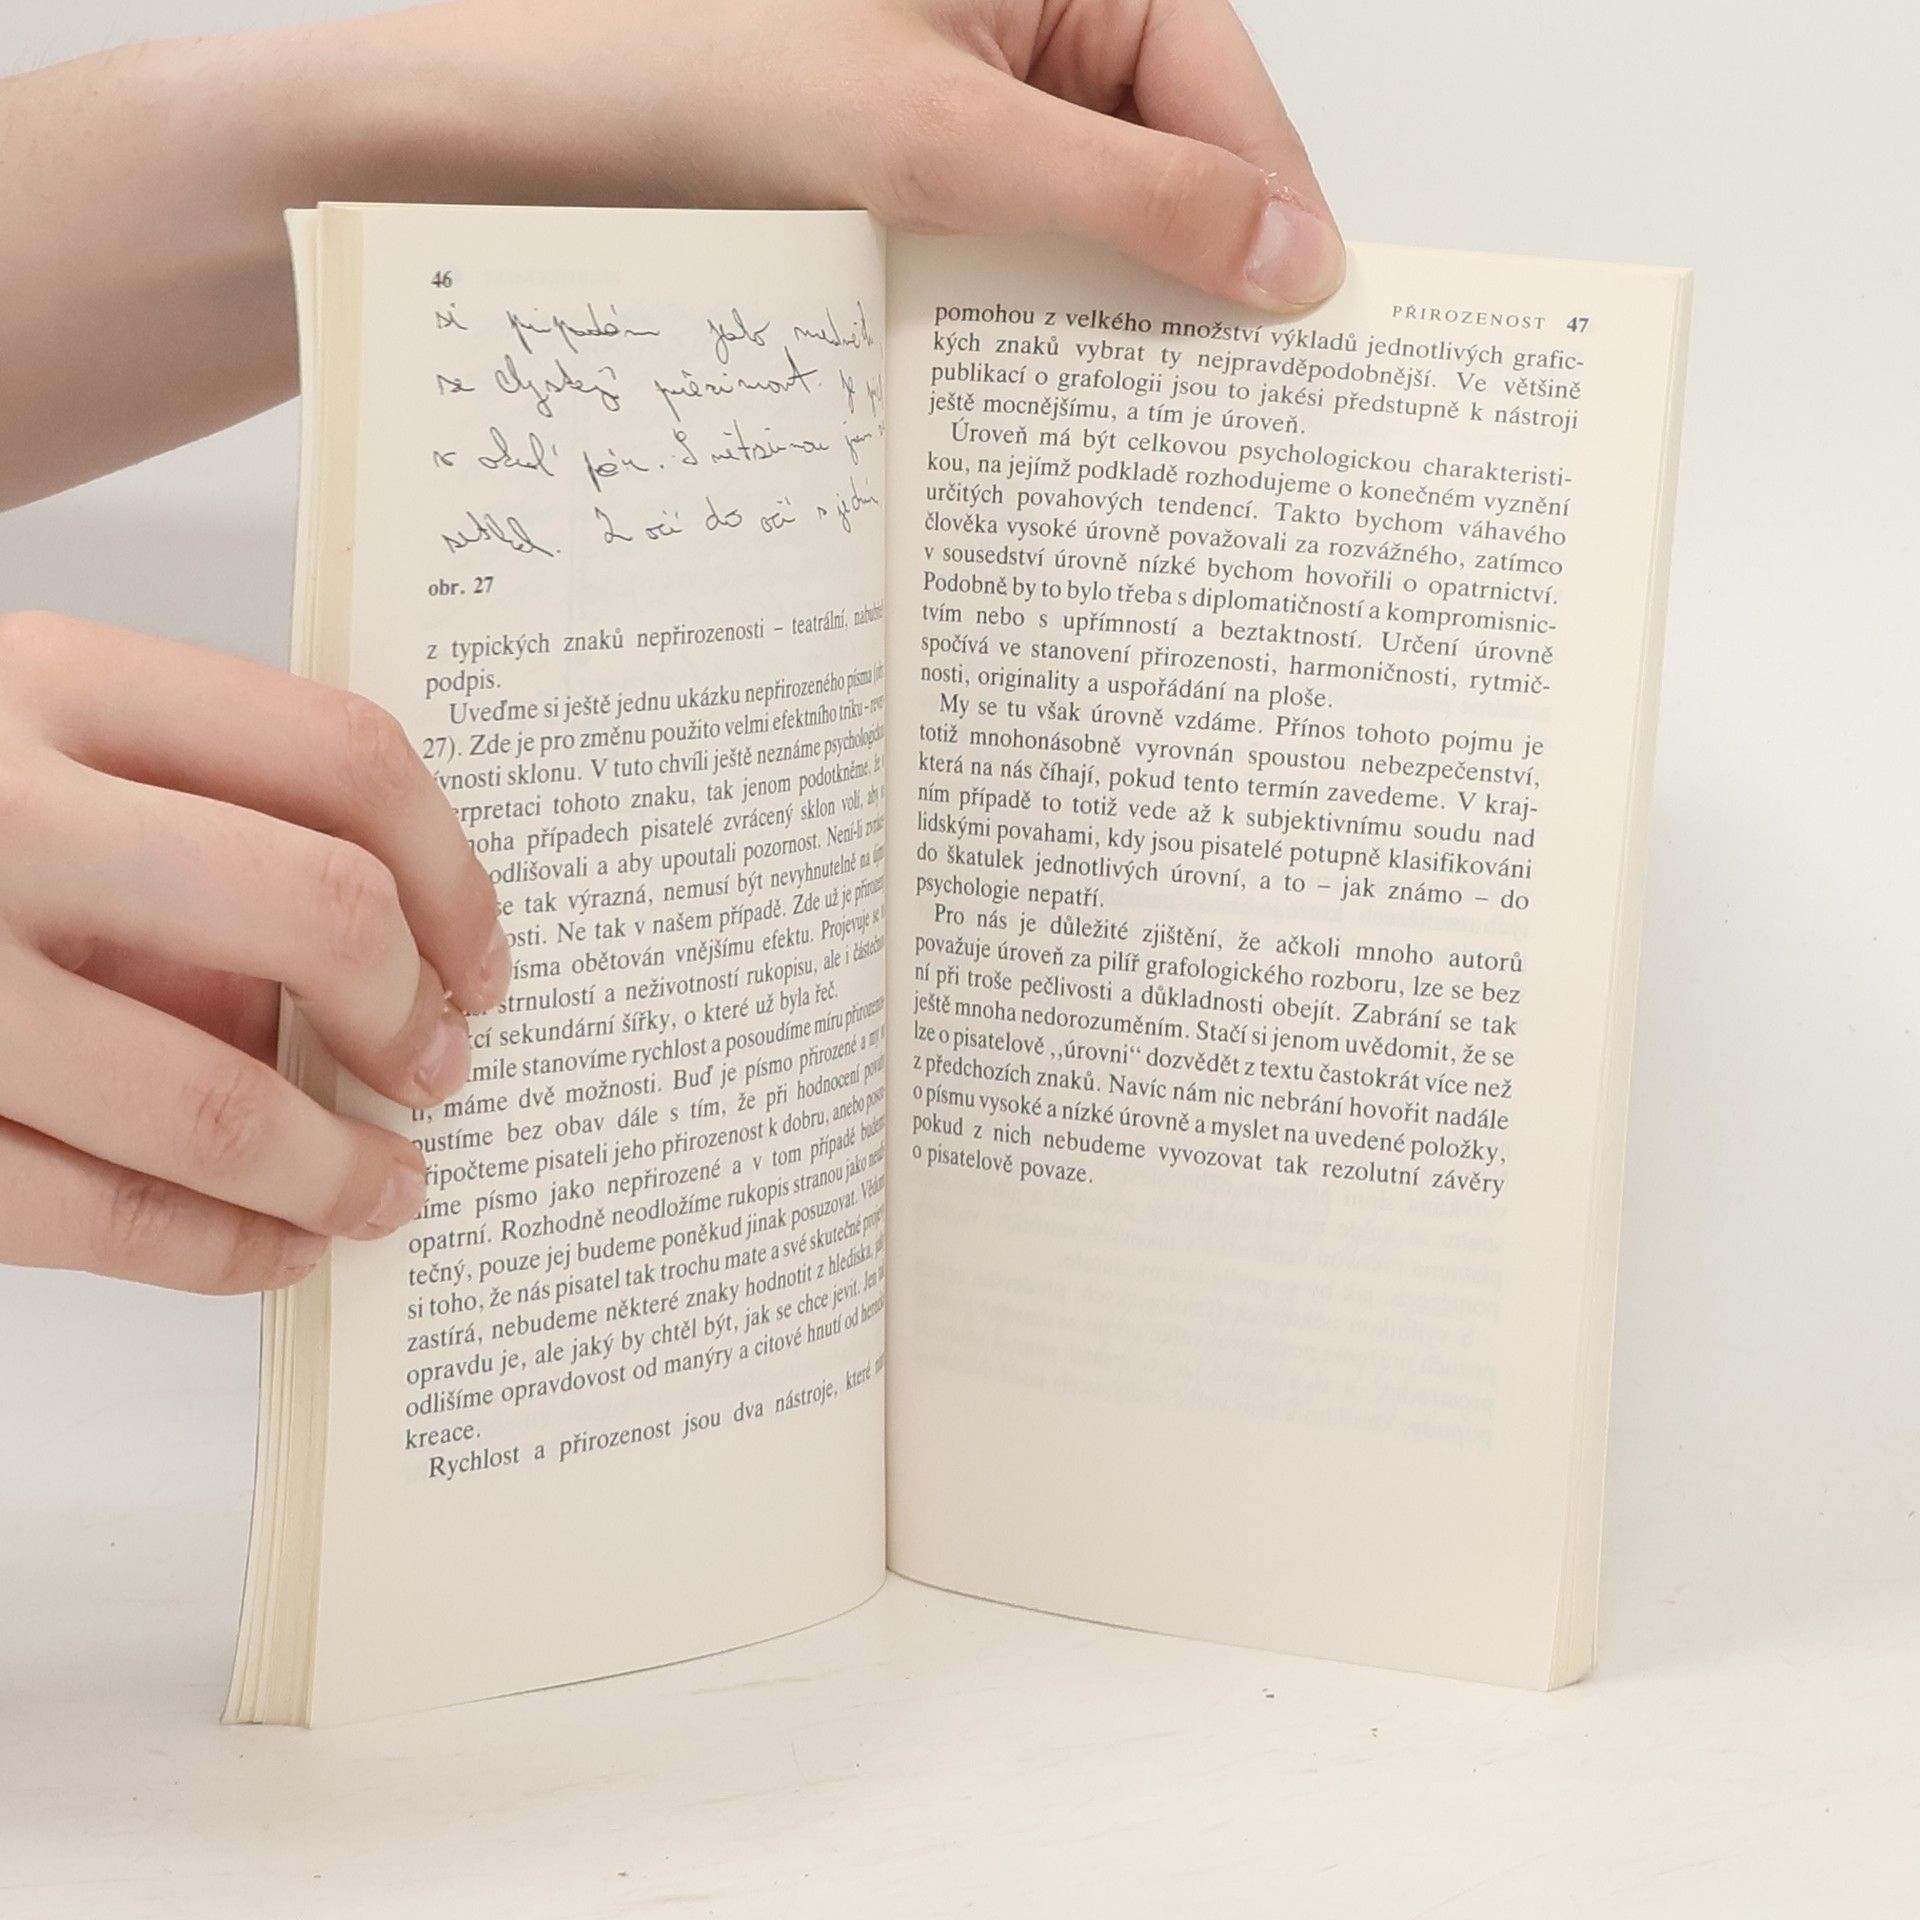 46
si připadám jako
se chystají
v okolí pár. S většinou jsem
setkal. Z očí do očí s
obr. 27
z typických znaků nepřirozenosti – teatrální,
podpis.
Uveďme si ještě jednu ukázku nepřirozeného písma (obr.
27). Zde je pro změnu použito velmi efektního triku –
sklonu. V tuto chvíli ještě neznáme
tohoto znaku, tak jenom podotkněme, že
případech pisatelé zvrácený sklon volí, aby
odlišovali a aby upoutali pozornost. Není-li
tak výrazná, nemusí být nevyhnutelně na
Ne tak v našem případě. Zde už je
obětován vnějšímu efektu. Projevuje se
strnulostí a neživotností rukopisu, ale i
sekundární šířky, o které už byla řeč.
stanovíme rychlost a posoudíme míru
máme dvě možnosti. Buď je písmo přirozené a my
bez obav dále s tím, že při hodnocení
pisateli jeho přirozenost k dobru, anebo
písmo jako nepřirozené a v tom případě budeme
opatrní. Rozhodně neodložíme rukopis stranou jako
tečný, pouze jej budeme poněkud jinak posuzovat.
si toho, že nás pisatel tak trochu mate a své skutečné projevy
zastírá, nebudeme některé znaky hodnotit z hlediska,
opravdu je, ale jaký by chtěl být, jak se chce jevit. Jen
odlišíme opravdovost od manýry a citové hnutí od
kreace.
Rychlost a přirozenost jsou dva nástroje, které
PŘIROZENOST 47
pomohou z velkého množství výkladů jednotlivých grafic-
kých znaků vybrat ty nejpravděpodobnější. Ve většině
publikací o grafologii jsou to jakési předstupně k nástroji
ještě mocnějšímu, a tím je úroveň.
Úroveň má být celkovou psychologickou charakteristi-
kou, na jejímž podkladě rozhodujeme o konečném vyznění
určitých povahových tendencí. Takto bychom váhavého
člověka vysoké úrovně považovali za rozvážného, zatímco
v sousedství úrovně nízké bychom hovořili o opatrnictví.
Podobně by to bylo třeba s diplomatičností a kompromisnic-
tvím nebo s upřímností a beztaktností. Určení úrovně
spočívá ve stanovení přirozenosti, harmoničnosti, rytmič-
nosti, originality a uspořádání na ploše.
My se tu však úrovně vzdáme. Přínos tohoto pojmu je
totiž mnohonásobně vyrovnán spoustou nebezpečenství,
která na nás číhají, pokud tento termín zavedeme. V kraj-
ním případě to totiž vede až k subjektivnímu soudu nad
lidskými povahami, kdy jsou pisatelé potupně klasifikováni
do škatulek jednotlivých úrovní, a to – jak známo – do
psychologie nepatří.
Pro nás je důležité zjištění, že ačkoli mnoho autorů
považuje úroveň za pilíř grafologického rozboru, lze se bez
ní při troše pečlivosti a důkladnosti obejít. Zabrání se tak
ještě mnoha nedorozuměním. Stačí si jenom uvědomit, že se
lze o pisatelově ,,úrovni“ dozvědět z textu častokrát více než
z předchozích znaků. Navíc nám nic nebrání hovořit nadále
o písmu vysoké a nízké úrovně a myslet na uvedené položky,
pokud z nich nebudeme vyvozovat tak rezolutní závěry
o pisatelově povaze.